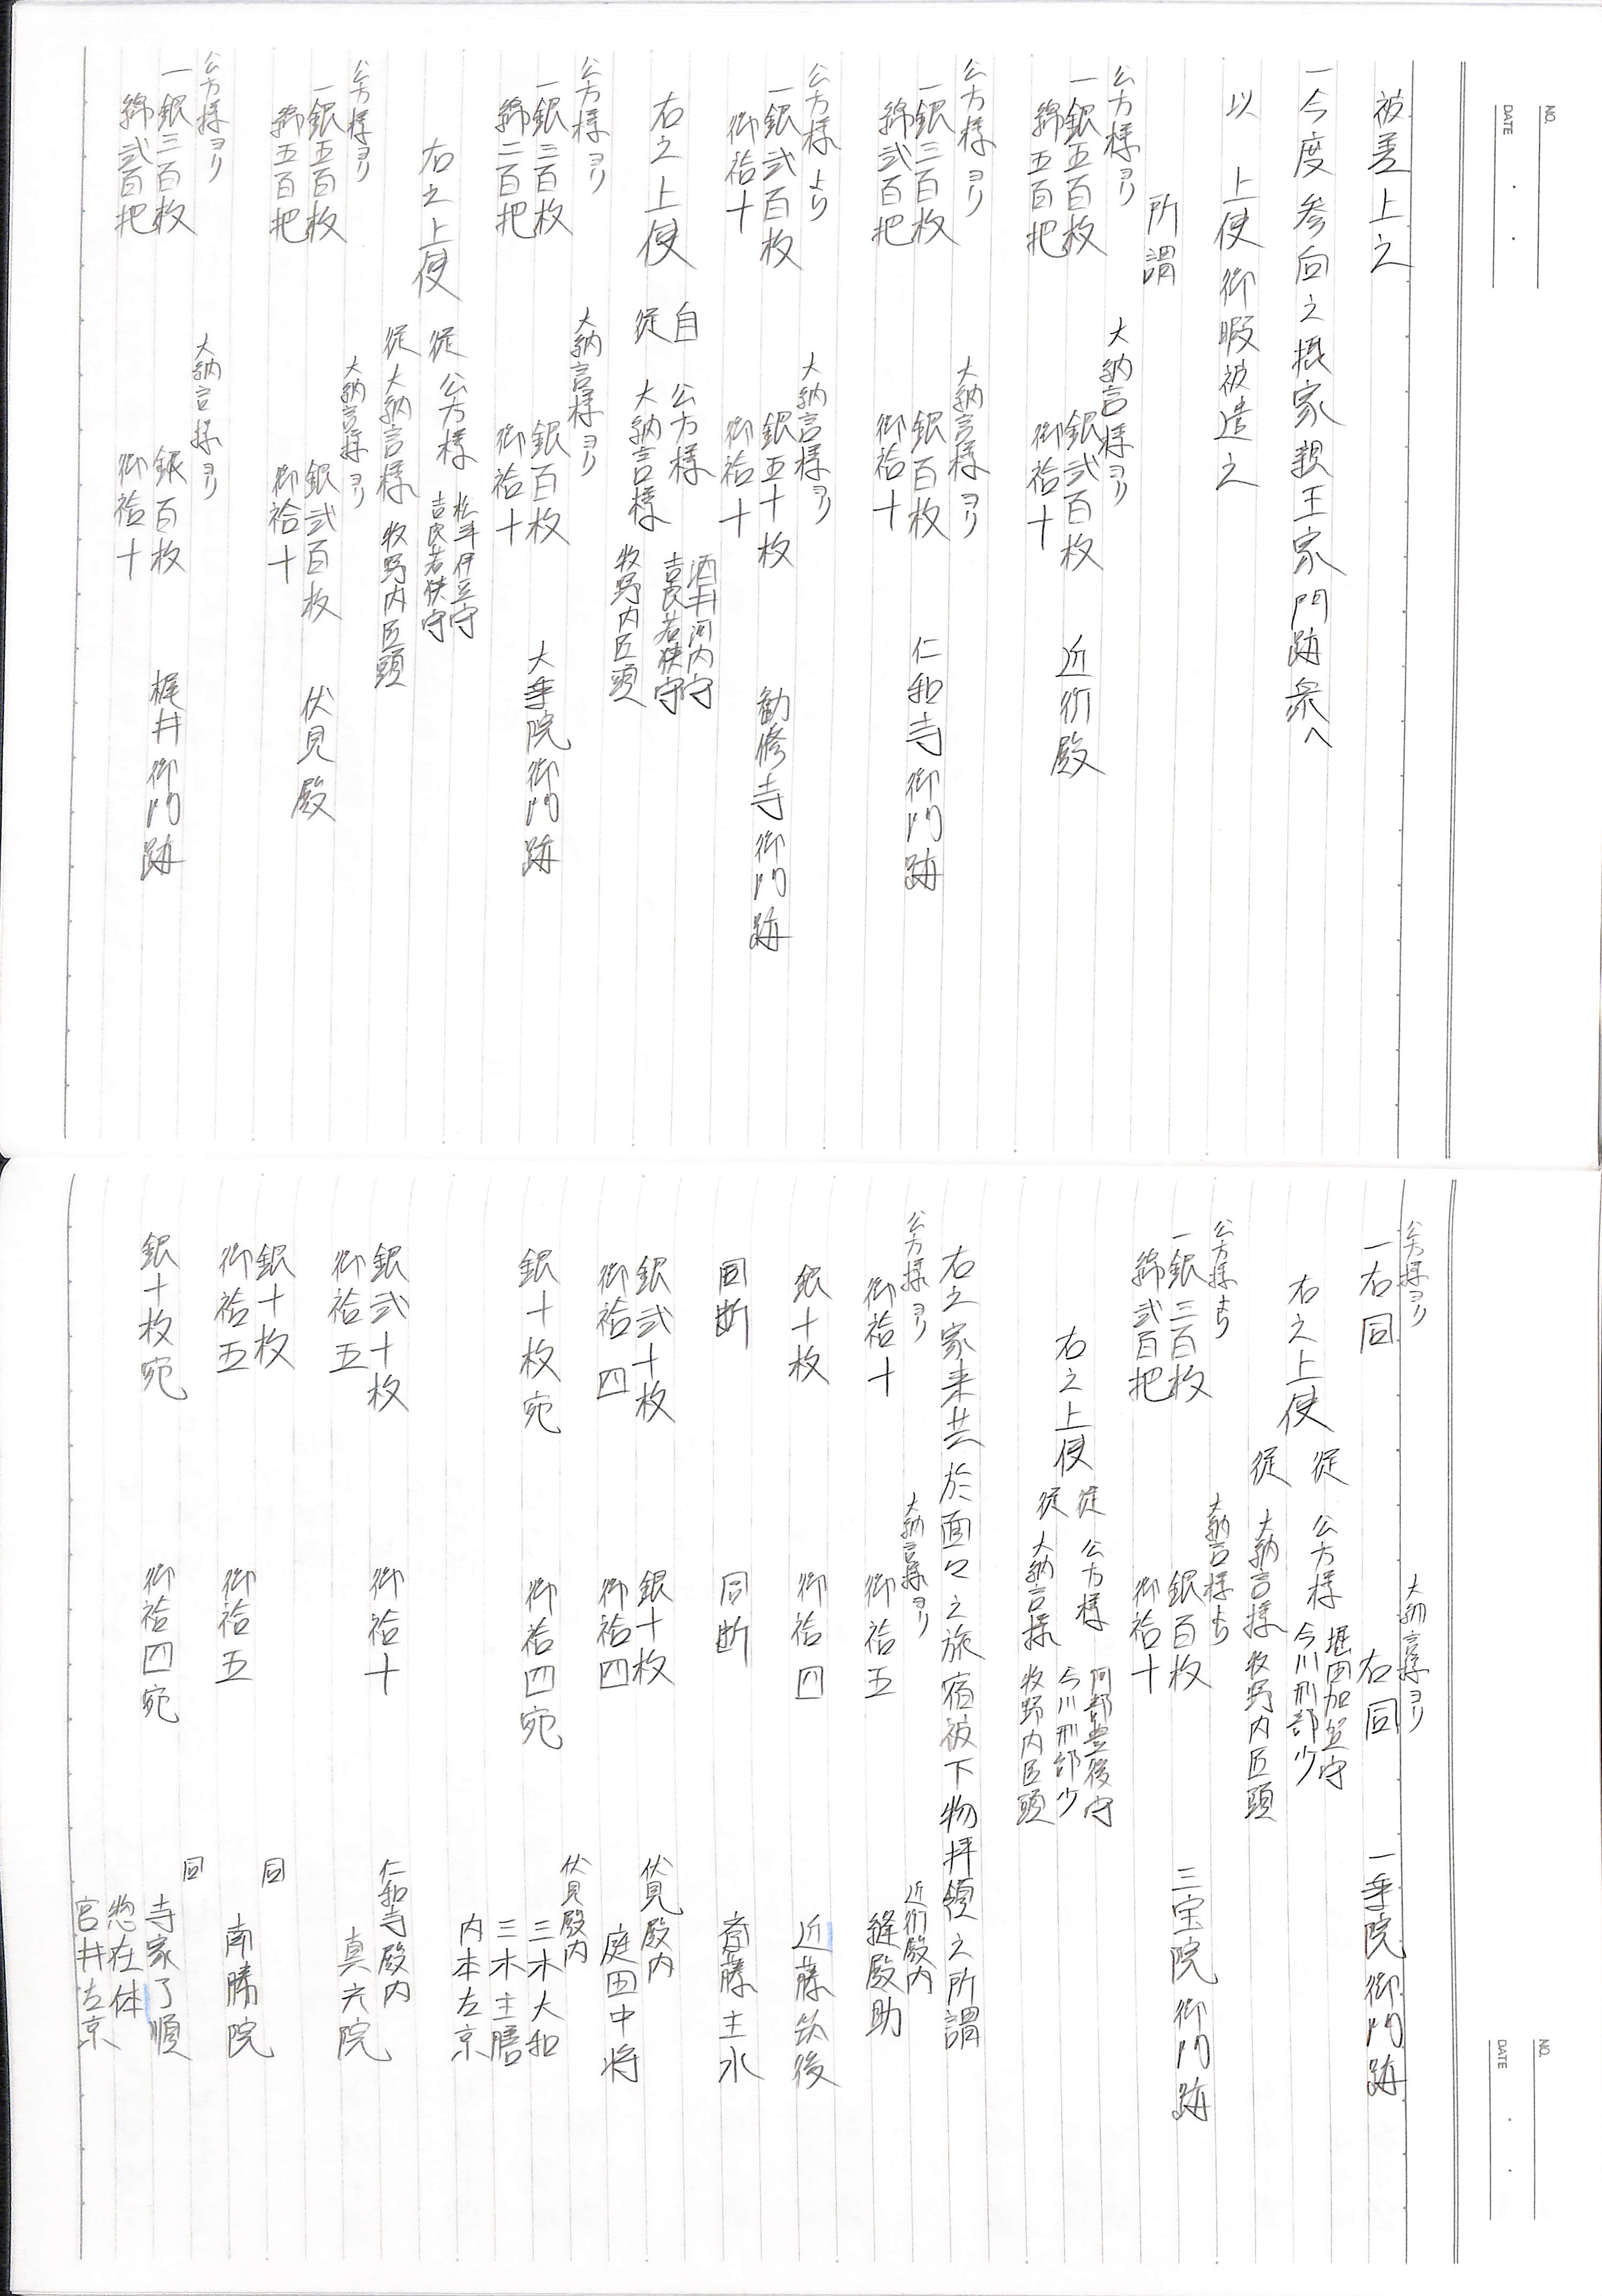 NO.
DATE
被差上之
一今度参向之摂家親王家門跡衆へ
以 上使御暇被遣之
所謂
公方様ヨリ 大納言様ヨリ
一銀五百枚 銀弐百枚 近衛殿
綿五百把 御袷十
公方様ヨリ 大納言様ヨリ
一銀三百枚 銀百枚 仁和寺御門跡
綿弐百把 御袷十
公方様より 大納言様ヨリ
一銀弐百枚 銀五十枚 勧修寺御門跡
御袷十 御袷十
右之上使 自 公方様 酒井河内守 吉良若狭守
従 大納言様 牧野内匠頭
公方様ヨリ 大納言様ヨリ
一銀三百枚 銀百枚 大乗院御門跡
綿二百把 御袷十
右之上使 従 公方様 松平伊豆守 吉良若狭守
従 大納言様 牧野内匠頭
公方様ヨリ 大納言様ヨリ
一銀五百枚 銀弐百枚 伏見殿
綿五百把 御袷十
公方様ヨリ 大納言様ヨリ
一銀三百枚 銀百枚 梶井御門跡
綿弐百把 御袷十
NO.
DATE
公方様ヨリ 大納言様ヨリ
一右同 右同 一乗院御門跡
右之上使 従 公方様 堀田加賀守 今川刑部少
従 大納言様 牧野内匠頭
公方様より 大納言様より
一銀三百枚 銀百枚 三宝院御門跡
綿弐百把 御袷十
右之上使 従 公方様 阿部豊後守 今川刑部少
従 大納言様 牧野内匠頭
右之家来共於面々之旅宿被下物拝領之所謂
公方様ヨリ 大納言様ヨリ 近衛殿内
御袷十 御袷五 縫殿助
銀十枚 御袷四 近藤筑後
同断 同断 斎藤主水
伏見殿内
銀弐十枚 銀十枚 庭田中将
御袷四 御袷四
伏見殿内
銀十枚宛 御袷四宛 三木大和
三木主膳
内本左京
仁和寺殿内
銀弐十枚 御袷十 真光院
御袷五
同
銀十枚 御袷五 南勝院
御袷五
同
銀十枚宛 御袷四宛 寺家了順
惣在体
官井左京